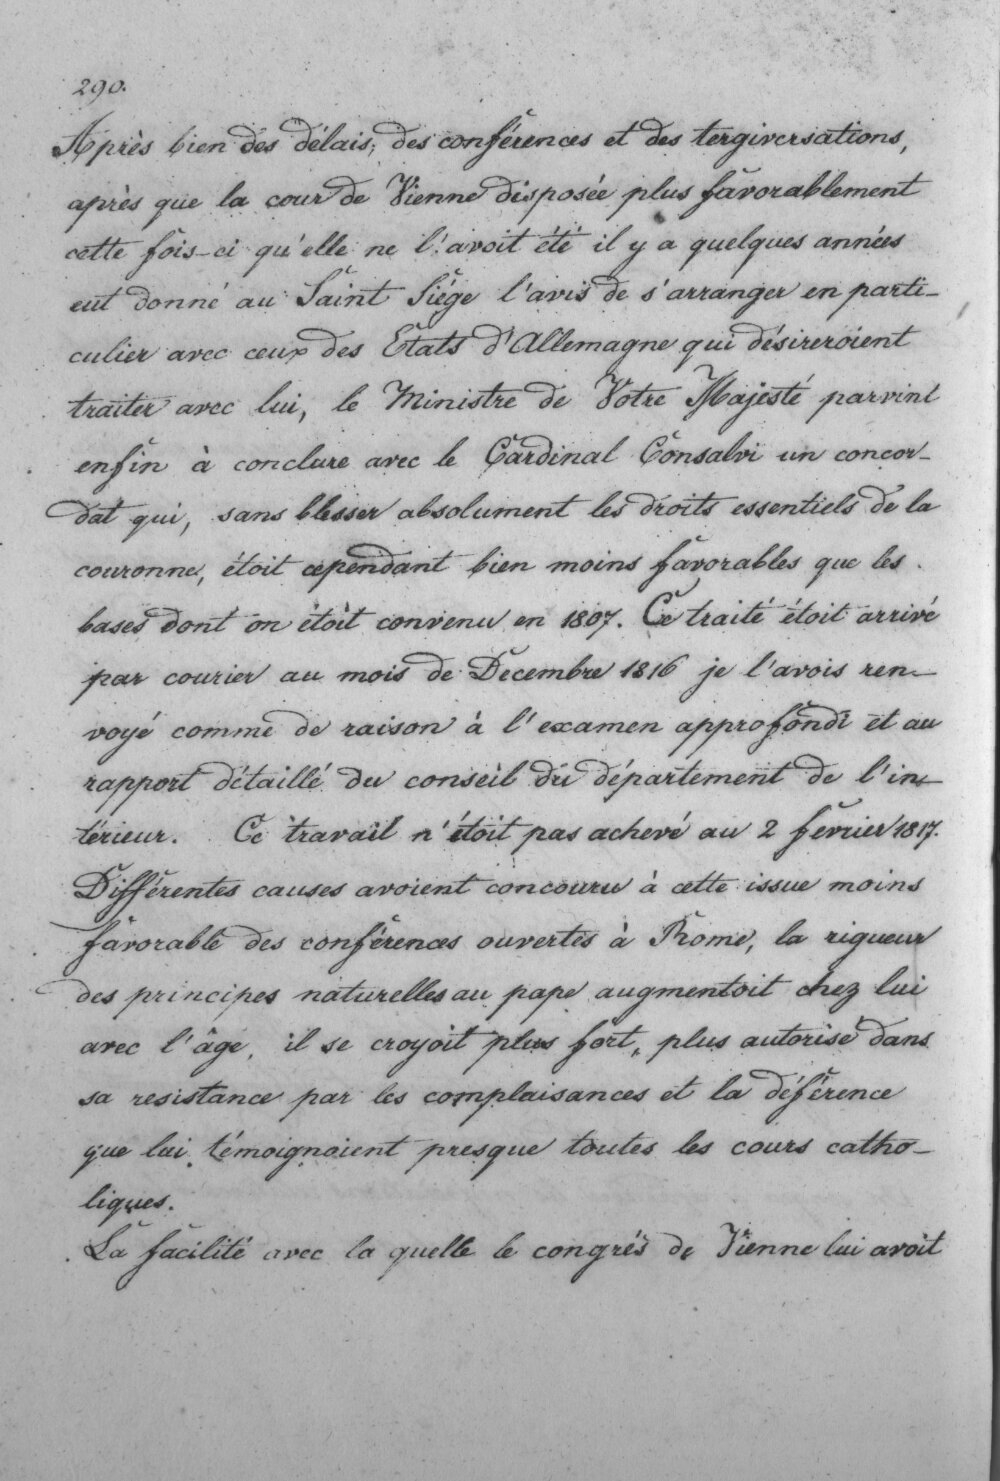 290.
Après bien des délais, des conférences et des tergiversations,
après que la cour de Vienne disposée plus favorablement
cette fois-ci qu'elle ne l'avoit été il y a quelques années
eut donné au Saint Siége l'avis de s'arranger en parti-
culier avec ceux des Etats d'Allemagne qui désireroient
traiter avec lui, le Ministre de Votre Majesté parvint
enfin à conclure avec le Cardinal Consalvi un concor-
dat qui, sans blesser absolument les droits essentiels de la
couronne, étoit cependant bien moins favorables que les
bases dont on étoit convenu en 1807. Ce traité étoit arrivé
par courier au mois de Decembre 1816 je l'avois ren-
voyé comme de raison à l'examen approfondi et au
rapport détaillé du conseil du département de l'in-
térieur. Ce travail n'étoit pas achevé au 2 fevrier 1817.
Différentes causes avoient concouru à cette issue moins
favorable des conférences ouvertes à Rome, la rigueur
des principes naturelles au pape augmentoit chez lui
avec l'âge, il se croyoit plus fort, plus autorisé dans
sa resistance par les complaisances et la déférence
que lui témoignoient presque toutes les cours catho-
liques.
La facilité avec la quelle le congrés de Vienne lui avoit